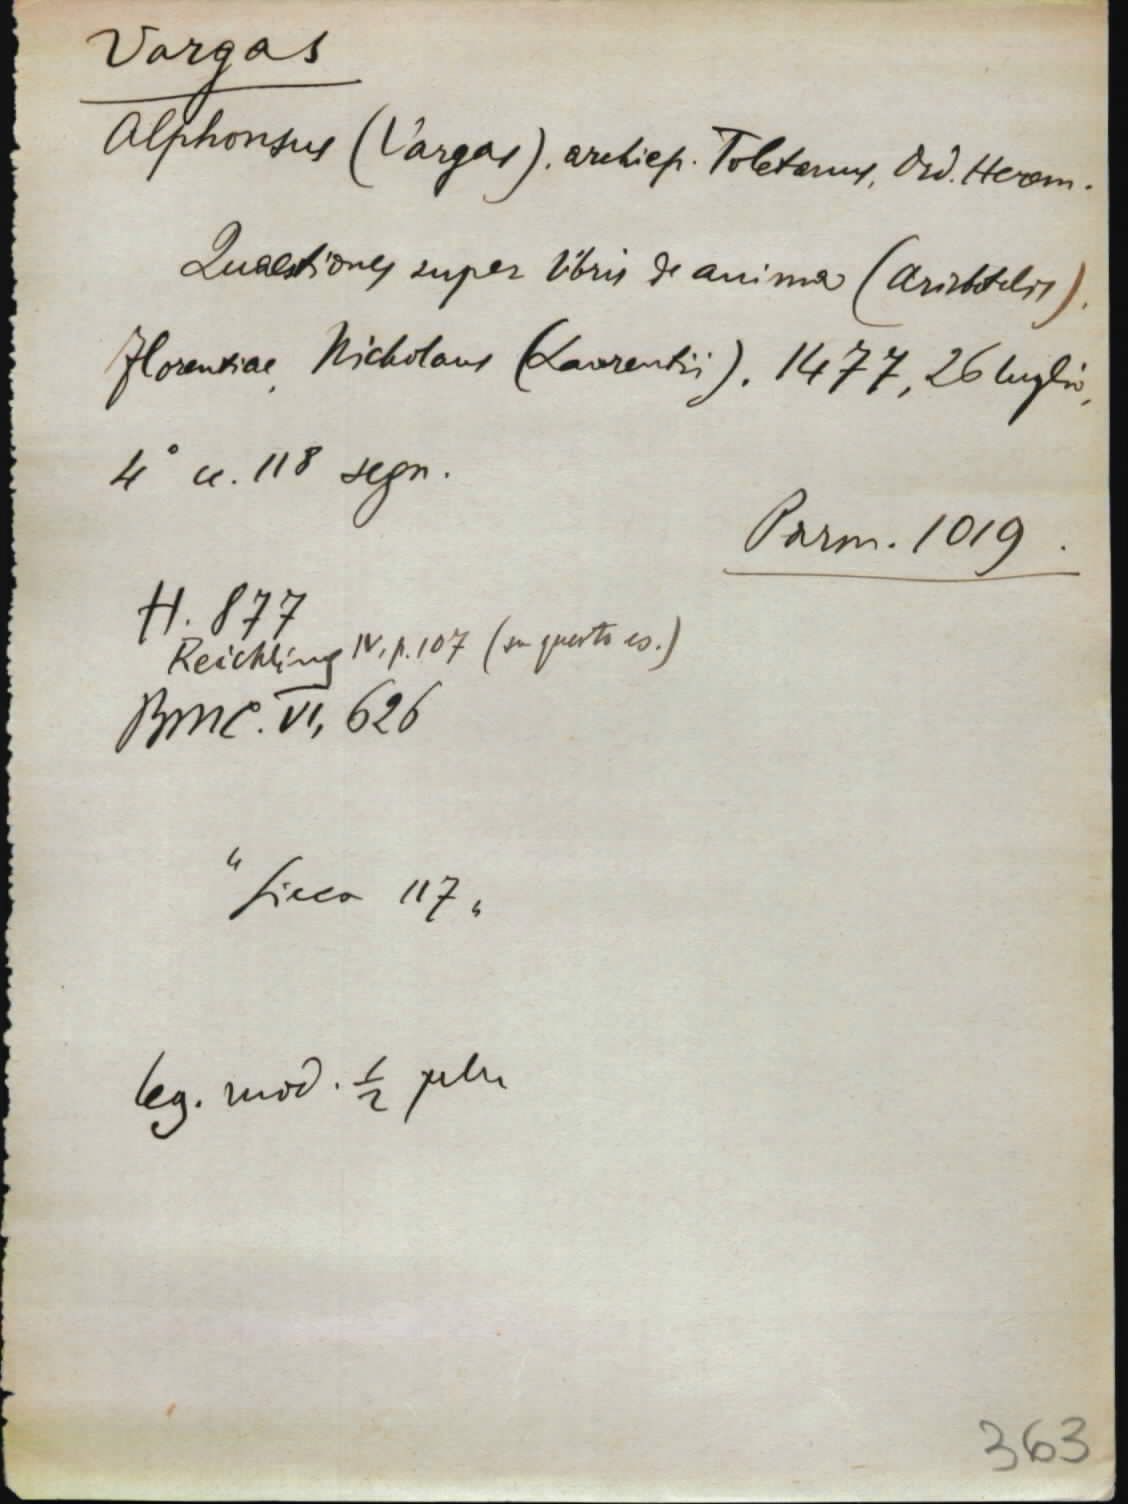 Vargas
Alphonsus (Vargas), archiep. Toletanus, Ord. Herem.
Quaestiones super libris de anima (Aristotelis).
Florentiae, Nicholaus (Laurentii). 1477, 26 luglio,
4° cc. 118 segn.
Parm. 1019.
H. 877
Reichling IV, p. 107 (su questo es.)
BMC. VI, 626
"Sicca 117"
leg. mod. 1/2 pelle
363